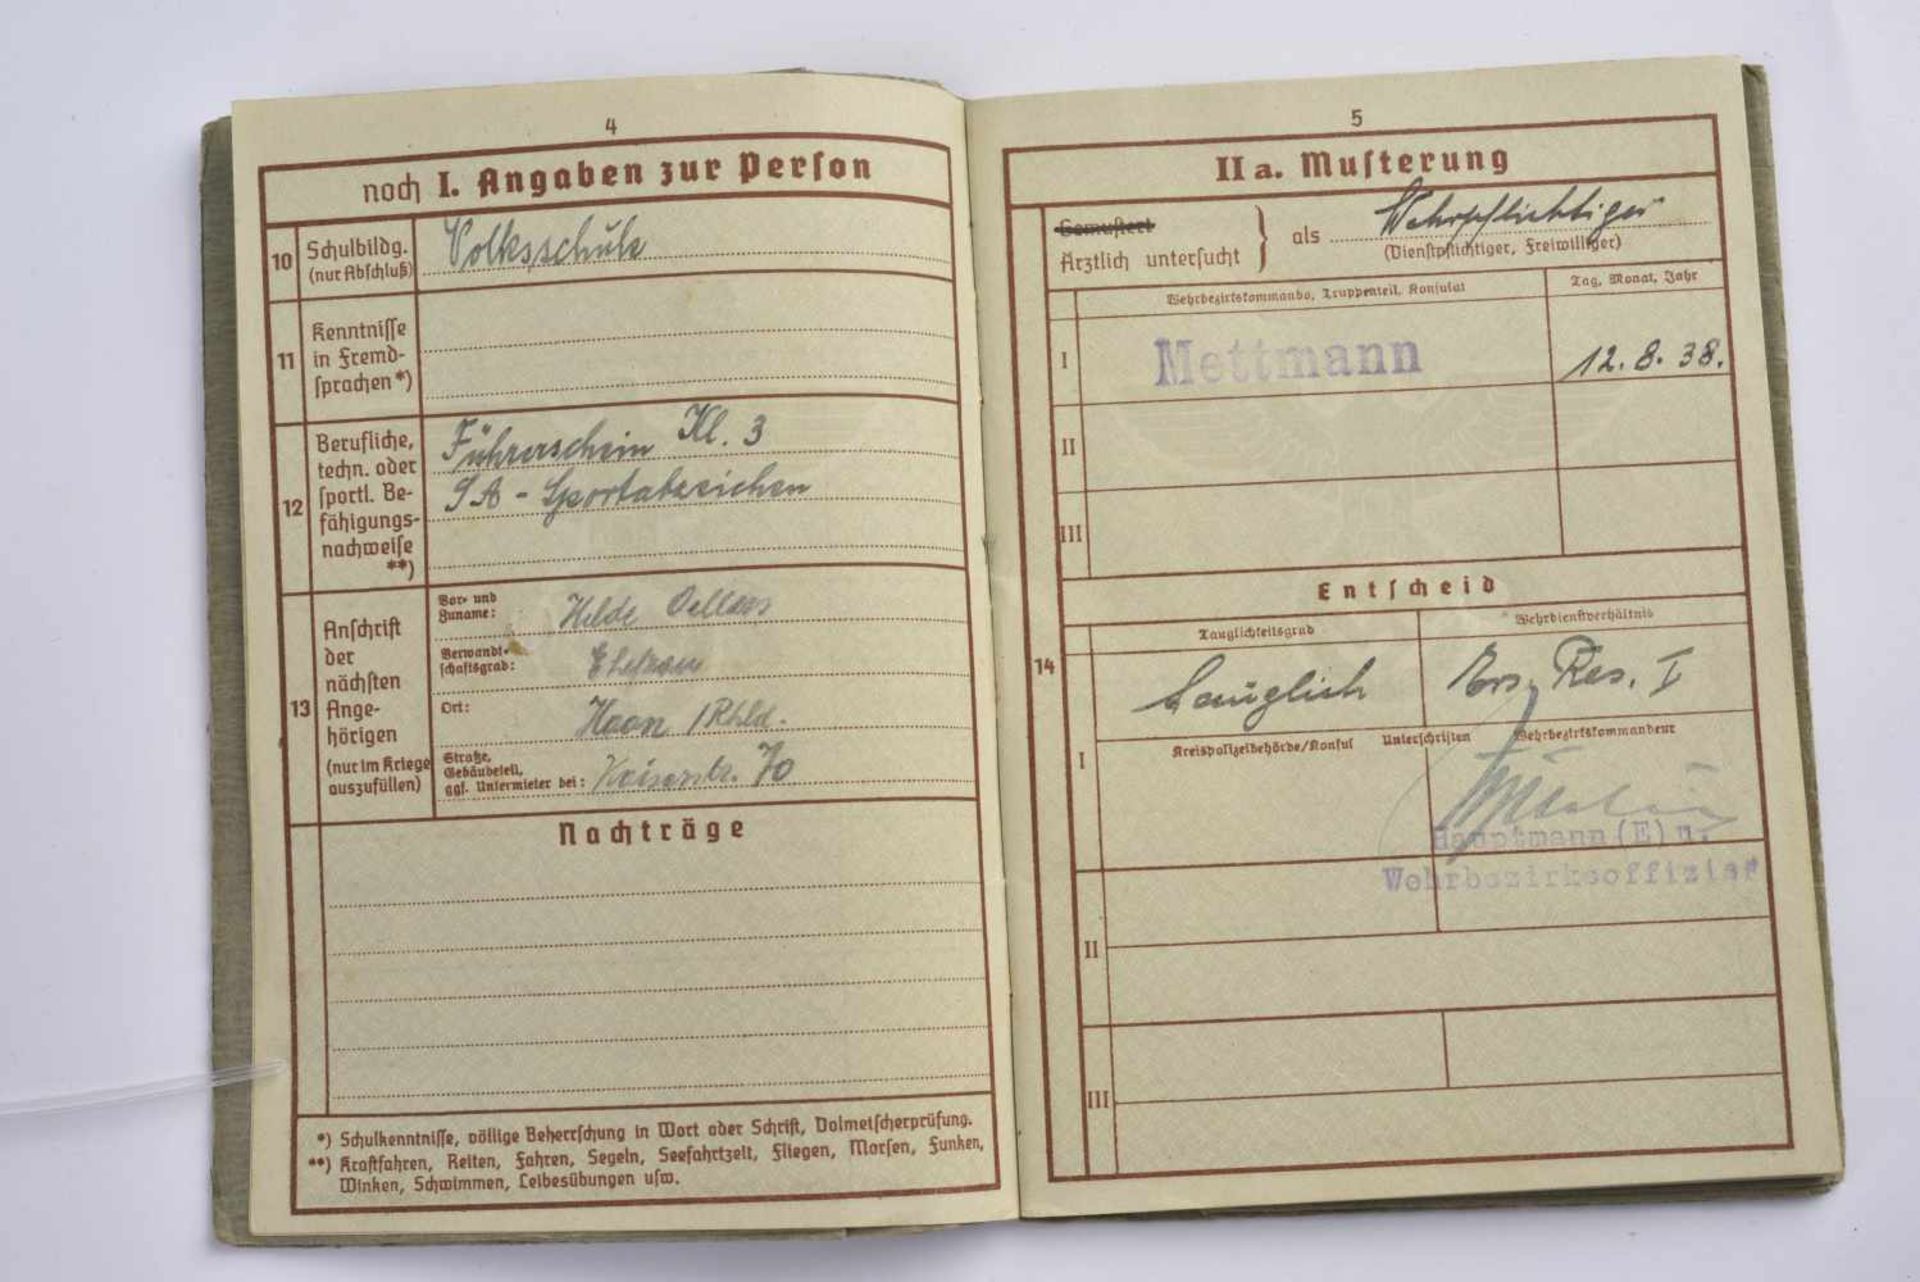 4
noch I. Angaben zur Person
10
Schulbildg.
(nur Abschluß)
Volksschule
11
Kenntnisse
in Fremd-
sprachen *)
12
Berufliche,
techn. oder
sportl. Be-
fähigungs-
nachweise
**)
Führerschein Kl. 3
SA - Sportabzeichen
13
Anschrift
der
nächsten
Ange-
hörigen
(nur im Kriege
auszufüllen)
Vor- und
Zuname:
Hilde Oellers
Verwandt-
schaftsgrad:
Ehefrau
Ort:
Haan /Rhld.
Straße,
Gebäudeteil,
ggf. Untermieter bei:
Kaiserstr. 70
Nachträge
*) Schulkenntnisse, völlige Beherrschung in Wort oder Schrift, Dolmetscherprüfung.
**) Kraftfahren, Reiten, Fahren, Segeln, Seefahrtzeit, Fliegen, Morsen, Funken,
Winken, Schwimmen, Leibesübungen usw.
5
II a. Musterung
Gemustert
Ärztlich untersucht
} als
Wehrpflichtiger
(Dienstpflichtiger, Freiwilliger)
Wehrbezirkskommando, Truppenteil, Konsulat
Tag, Monat, Jahr
I
Mettmann
12. 8. 38.
II
III
Entscheid
14
Tauglichkeitsgrad
Wehrdienstverhältnis
tauglich
Ers. Res. I
I
Kreispolizeibehörde/Konsul
Unterschriften
Wehrbezirkskommandeur
Hauptmann (E) u.
Wehrbezirksoffizier
II
III